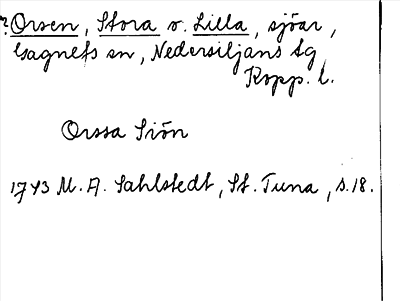 ?Orsen, Stora o. Lilla, sjöar,
Gagnefs sn, Nedersiljans tg
Kopp. l.
Orssa Siön
1743 M. A. Sahlstedt, St. Tuna, s. 18.